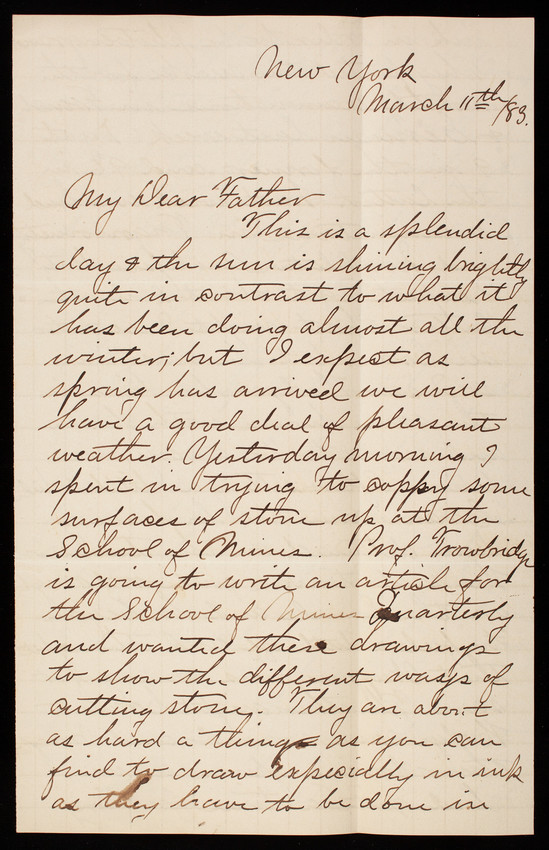 New York
March 11th/83.
My Dear Father
This is a splendid
day & the sun is shining brightly
quite in contrast to what it
has been doing almost all the
winter; but I expect as
spring has arrived we will
have a good deal of pleasant
weather. Yesterday morning I
spent in trying to coppy some
surfaces of stone up at the
School of Mines. Prof. Trowbridge
is going to write an article for
the School of Mines Quarterly
and wanted these drawings
to show the different ways of
cutting stone. They are about
as hard a thing as you can
find to draw expecially in ink
as they have to be done in